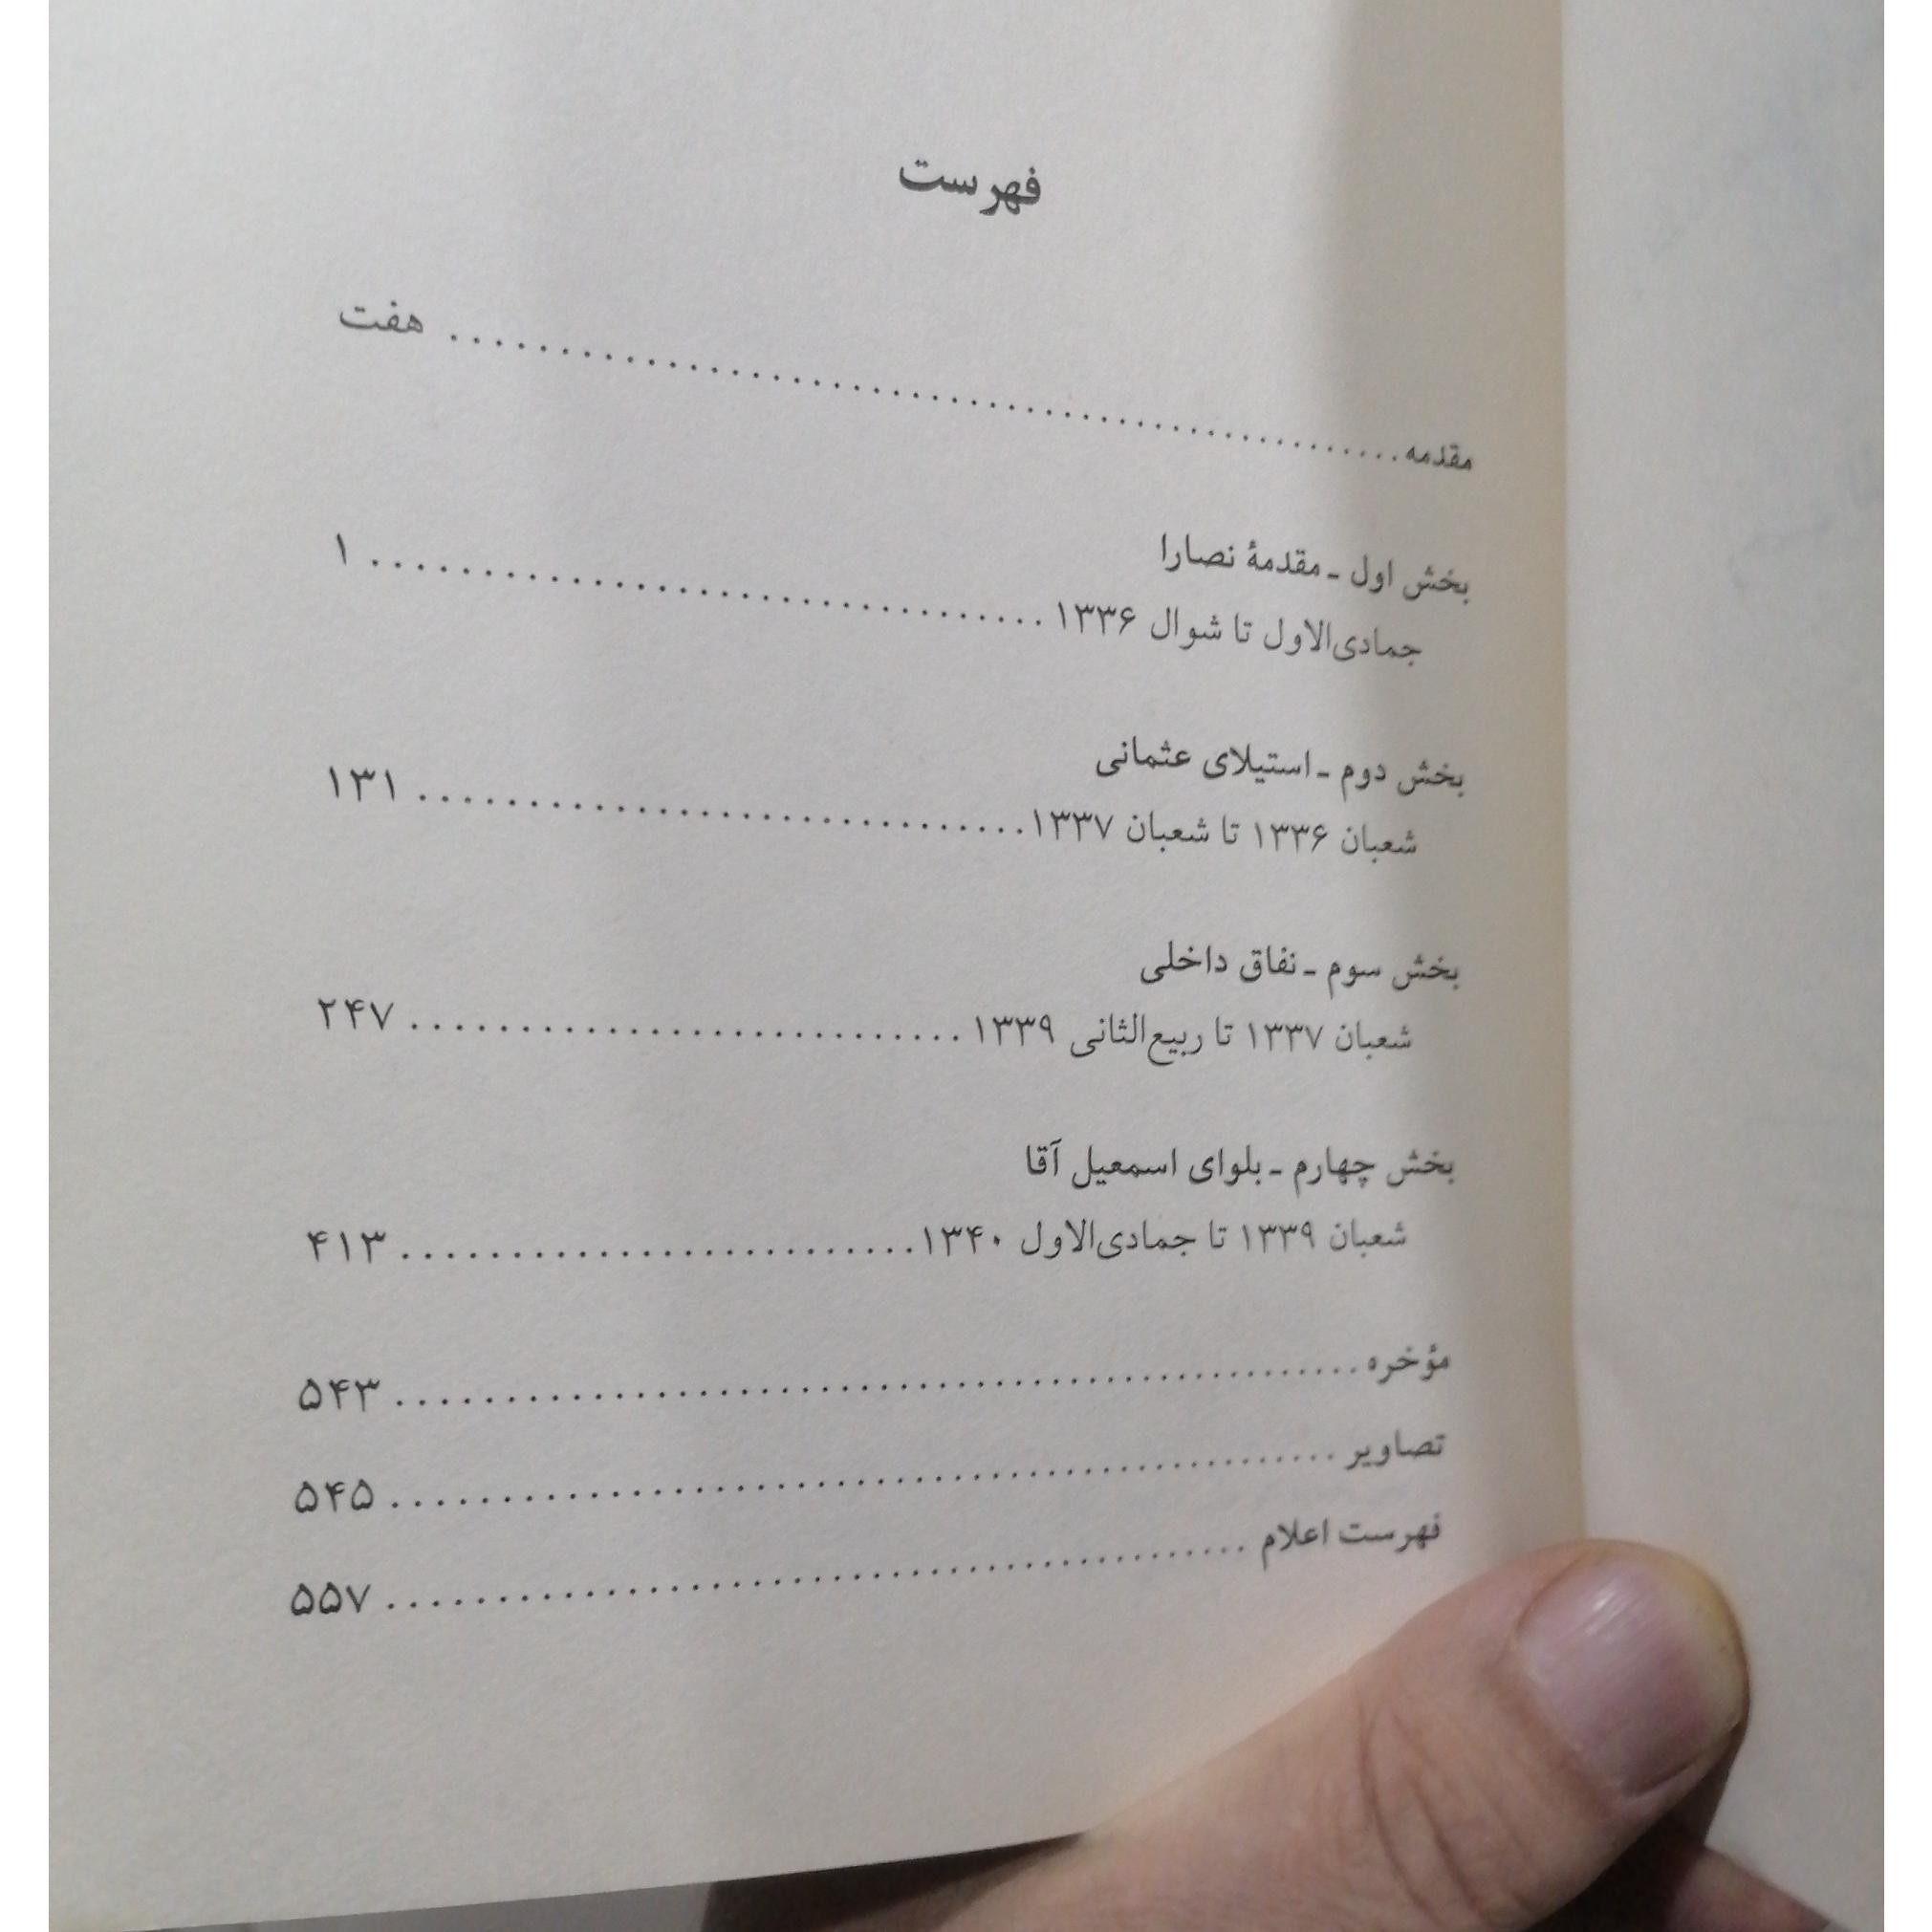 فهرست
مقدمه .......................................... هفت
بخش اول ـ مقدمهٔ نصارا
جمادی‌الاول تا شوال ۱۳۳۶ .............................. ۱
بخش دوم ـ استیلای عثمانی
شعبان ۱۳۳۶ تا شعبان ۱۳۳۷ .............................. ۱۳۱
بخش سوم ـ نفاق داخلی
شعبان ۱۳۳۷ تا ربیع‌الثانی ۱۳۳۹ .............................. ۲۴۷
بخش چهارم ـ بلوای اسمعیل آقا
شعبان ۱۳۳۹ تا جمادی‌الاول ۱۳۴۰ .............................. ۴۱۳
مؤخره .......................................... ۵۴۳
تصاویر .......................................... ۵۴۵
فهرست اعلام .......................................... ۵۵۷